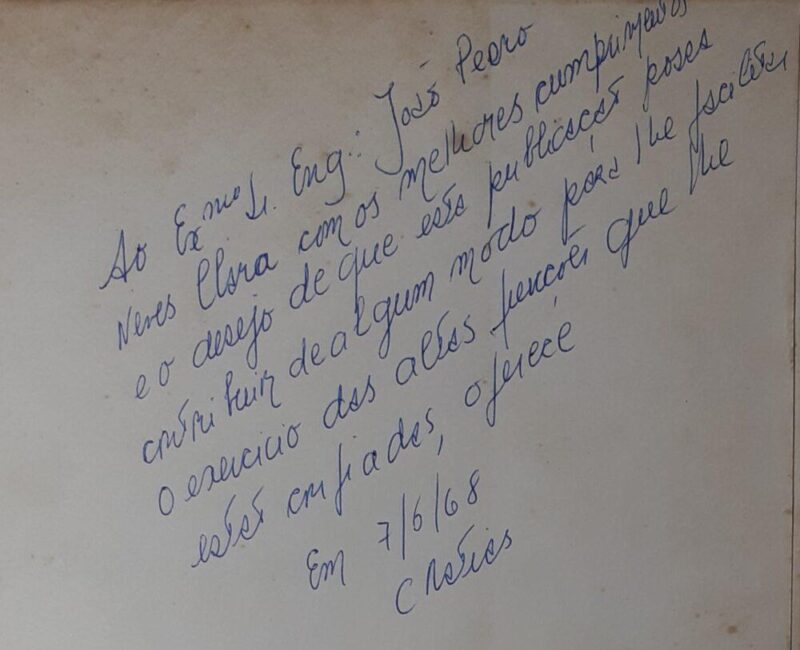 Ao Exmo Sr. Eng: João Pedro
Neves Clara com os melhores cumprimentos
e o desejo de que esta publicação possa
contribuir de algum modo para lhe facilitar
o exercicio das altas funções que lhe
estão confiadas, oferece
Em 7/6/68